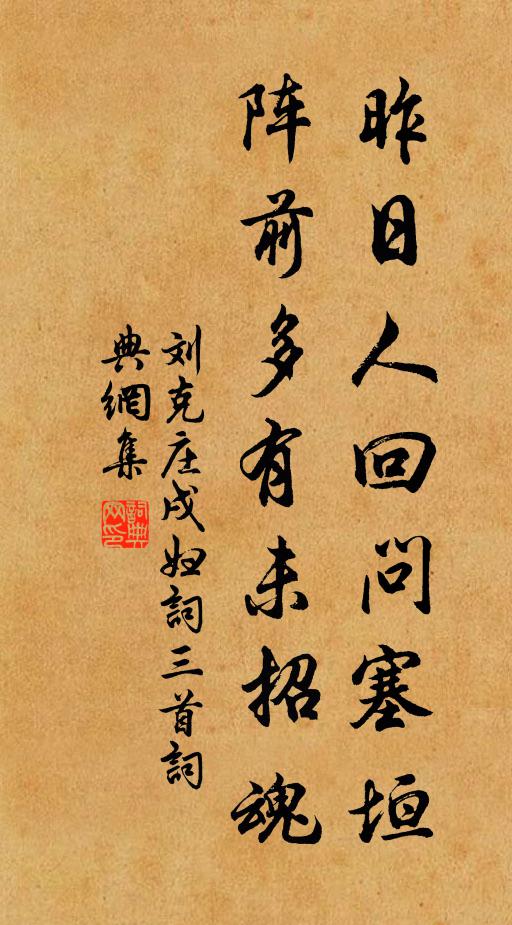 昨日人回问塞垣
阵前多有未招魂
刘克庄戍妇詞三首詞
典網集
詞典網印